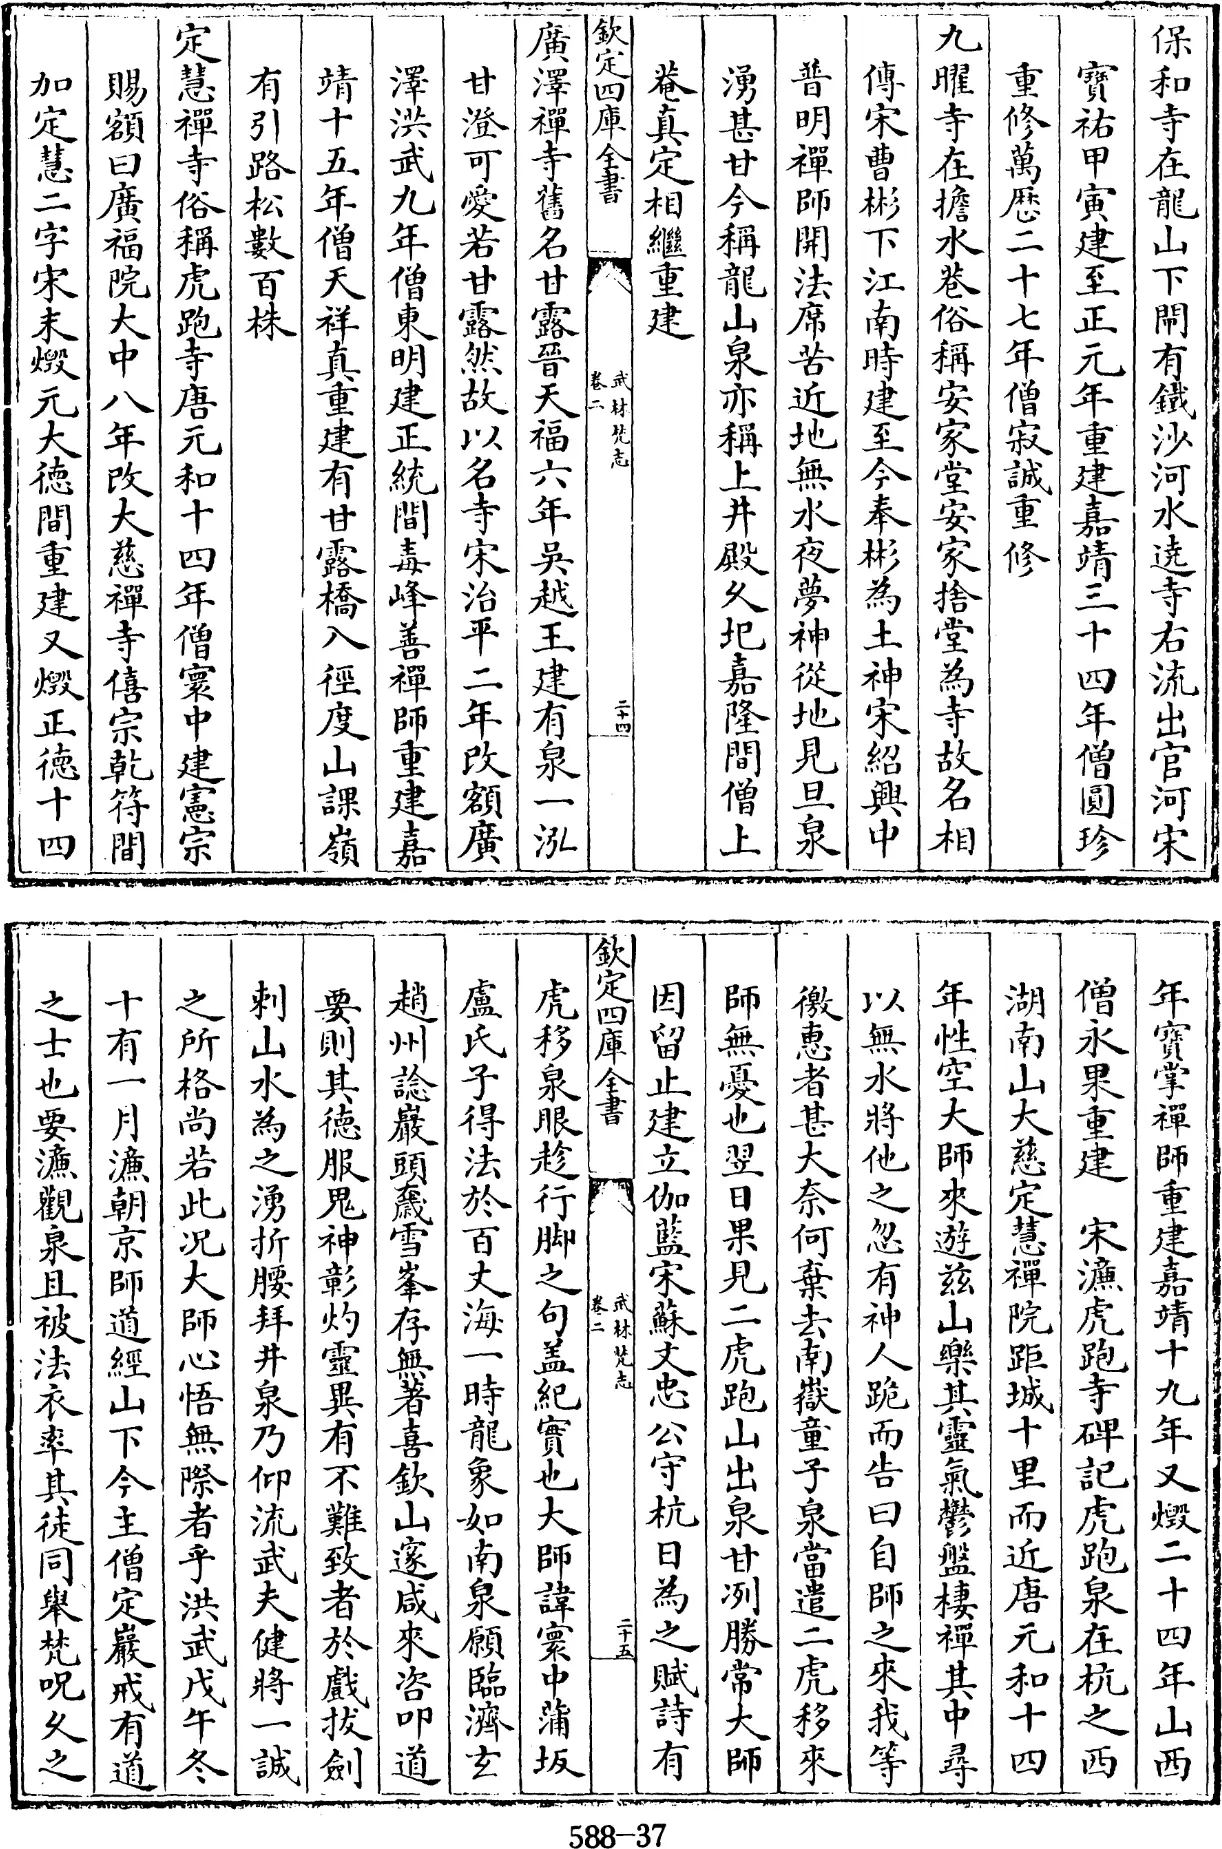 保和寺在龍山下閘有鐵沙河水遶寺右流出官河宋
寶祐甲寅建至正元年重建嘉靖三十四年僧圓珍
重修萬歷二十七年僧寂誠重修
九曜寺在擔水巷俗稱安家堂安家捨堂為寺故名相
傳宋曹彬下江南時建至今奉彬為土神宋紹興中
普明禪師開法席苦近地無水夜夢神從地見旦泉
湧甚甘今稱龍山泉亦稱上井殿久圯嘉隆間僧上
菴真定相繼重建
欽定四庫全書
武林梵志
卷二
二十四
廣澤禪寺舊名甘露晉天福六年吳越王建有泉一泓
甘澄可愛若甘露然故以名寺宋治平二年改額廣
澤洪武九年僧東明建正統間毒峰善禪師重建嘉
靖十五年僧天祥真重建有甘露橋入徑度山課嶺
有引路松數百株
定慧禪寺俗稱虎跑寺唐元和十四年僧寰中建憲宗
賜額曰廣福院大中八年改大慈禪寺僖宗乾符間
加定慧二字宋末燬元大德間重建又燬正德十四
年寶掌禪師重建嘉靖十九年又燬二十四年山西
僧永果重建　宋濂虎跑寺碑記虎跑泉在杭之西
湖南山大慈定慧禪院距城十里而近唐元和十四
年性空大師來遊茲山樂其靈氣鬱盤棲禪其中尋
以無水將他之忽有神人跪而告曰自師之來我等
徼惠者甚大奈何棄去南嶽童子泉當遣二虎移來
師無憂也翌日果見二虎跑山出泉甘冽勝常大師
因留止建立伽藍宋蘇文忠公守杭日為之賦詩有
欽定四庫全書
武林梵志
卷二
二十五
虎移泉眼趁行脚之句盖紀實也大師諱寰中蒲坂
盧氏子得法於百丈海一時龍象如南泉願臨濟玄
趙州諗巖頭奯雪峯存無著喜欽山邃咸來咨叩道
要則其德服鬼神彰灼靈異有不難致者於戲拔劍
刺山水為之湧折腰拜井泉乃仰流武夫健將一誠
之所格尚若此况大師心悟無際者乎洪武戊午冬
十有一月濂朝京師道經山下今主僧定巖戒有道
之士也要濂觀泉且被法衣率其徒同舉梵呪久之
588-37